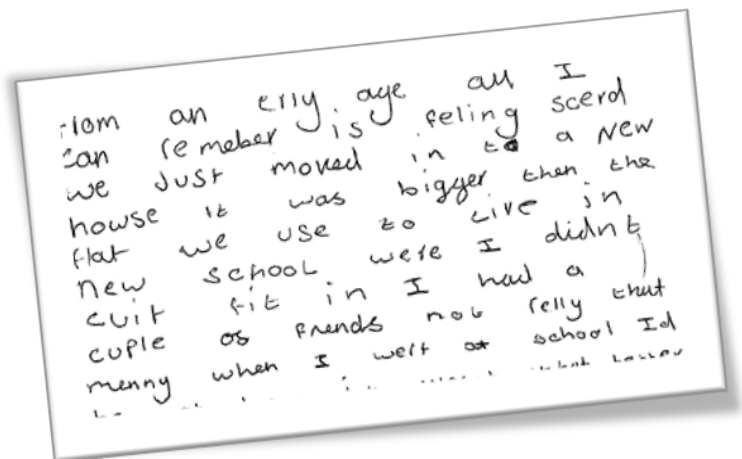 from an erly age all I
can remeber is feling scerd
we just moved in to a New
howse it was bigger then the
flat we use to Live in
new school were I didnt
cuit fit in I had a
cuple of frends not relly that
menny when I wert at school Id